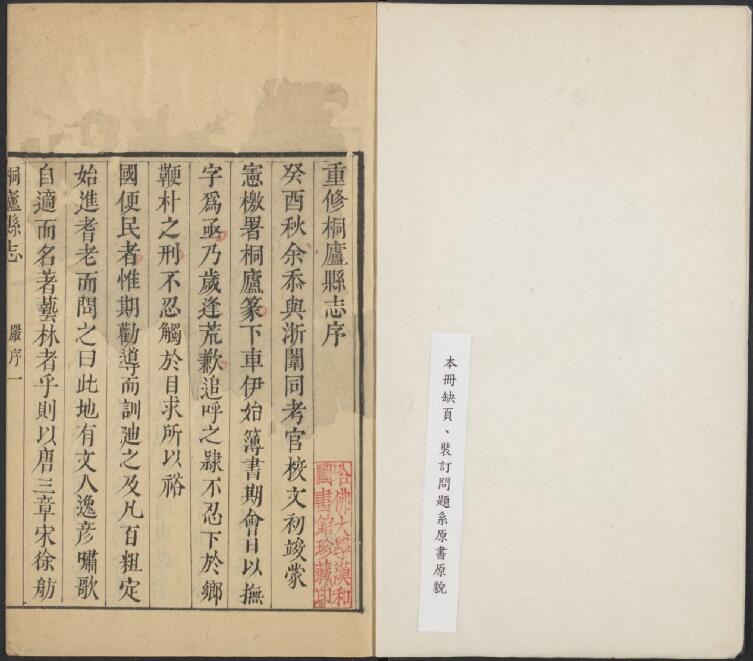 本冊缺頁、裝訂問題系原書原貌
重修桐廬縣志序
癸酉秋余忝與浙闈同考官校文初竣蒙
憲檄署桐廬篆下車伊始簿書期會日以撫
字為亟乃歲逢荒歉追呼之隸不忍下於鄉
鞭朴之刑不忍觸於目求所以裕
國便民者惟期勸導而訓廸之及凡百粗定
始進耆老而問之曰此地有文人逸彥嘯歌
自適而名著藝林者乎則以唐三章宋徐舫
桐廬縣志 嚴序 一
哈佛大學漢和
圖書館珍藏印